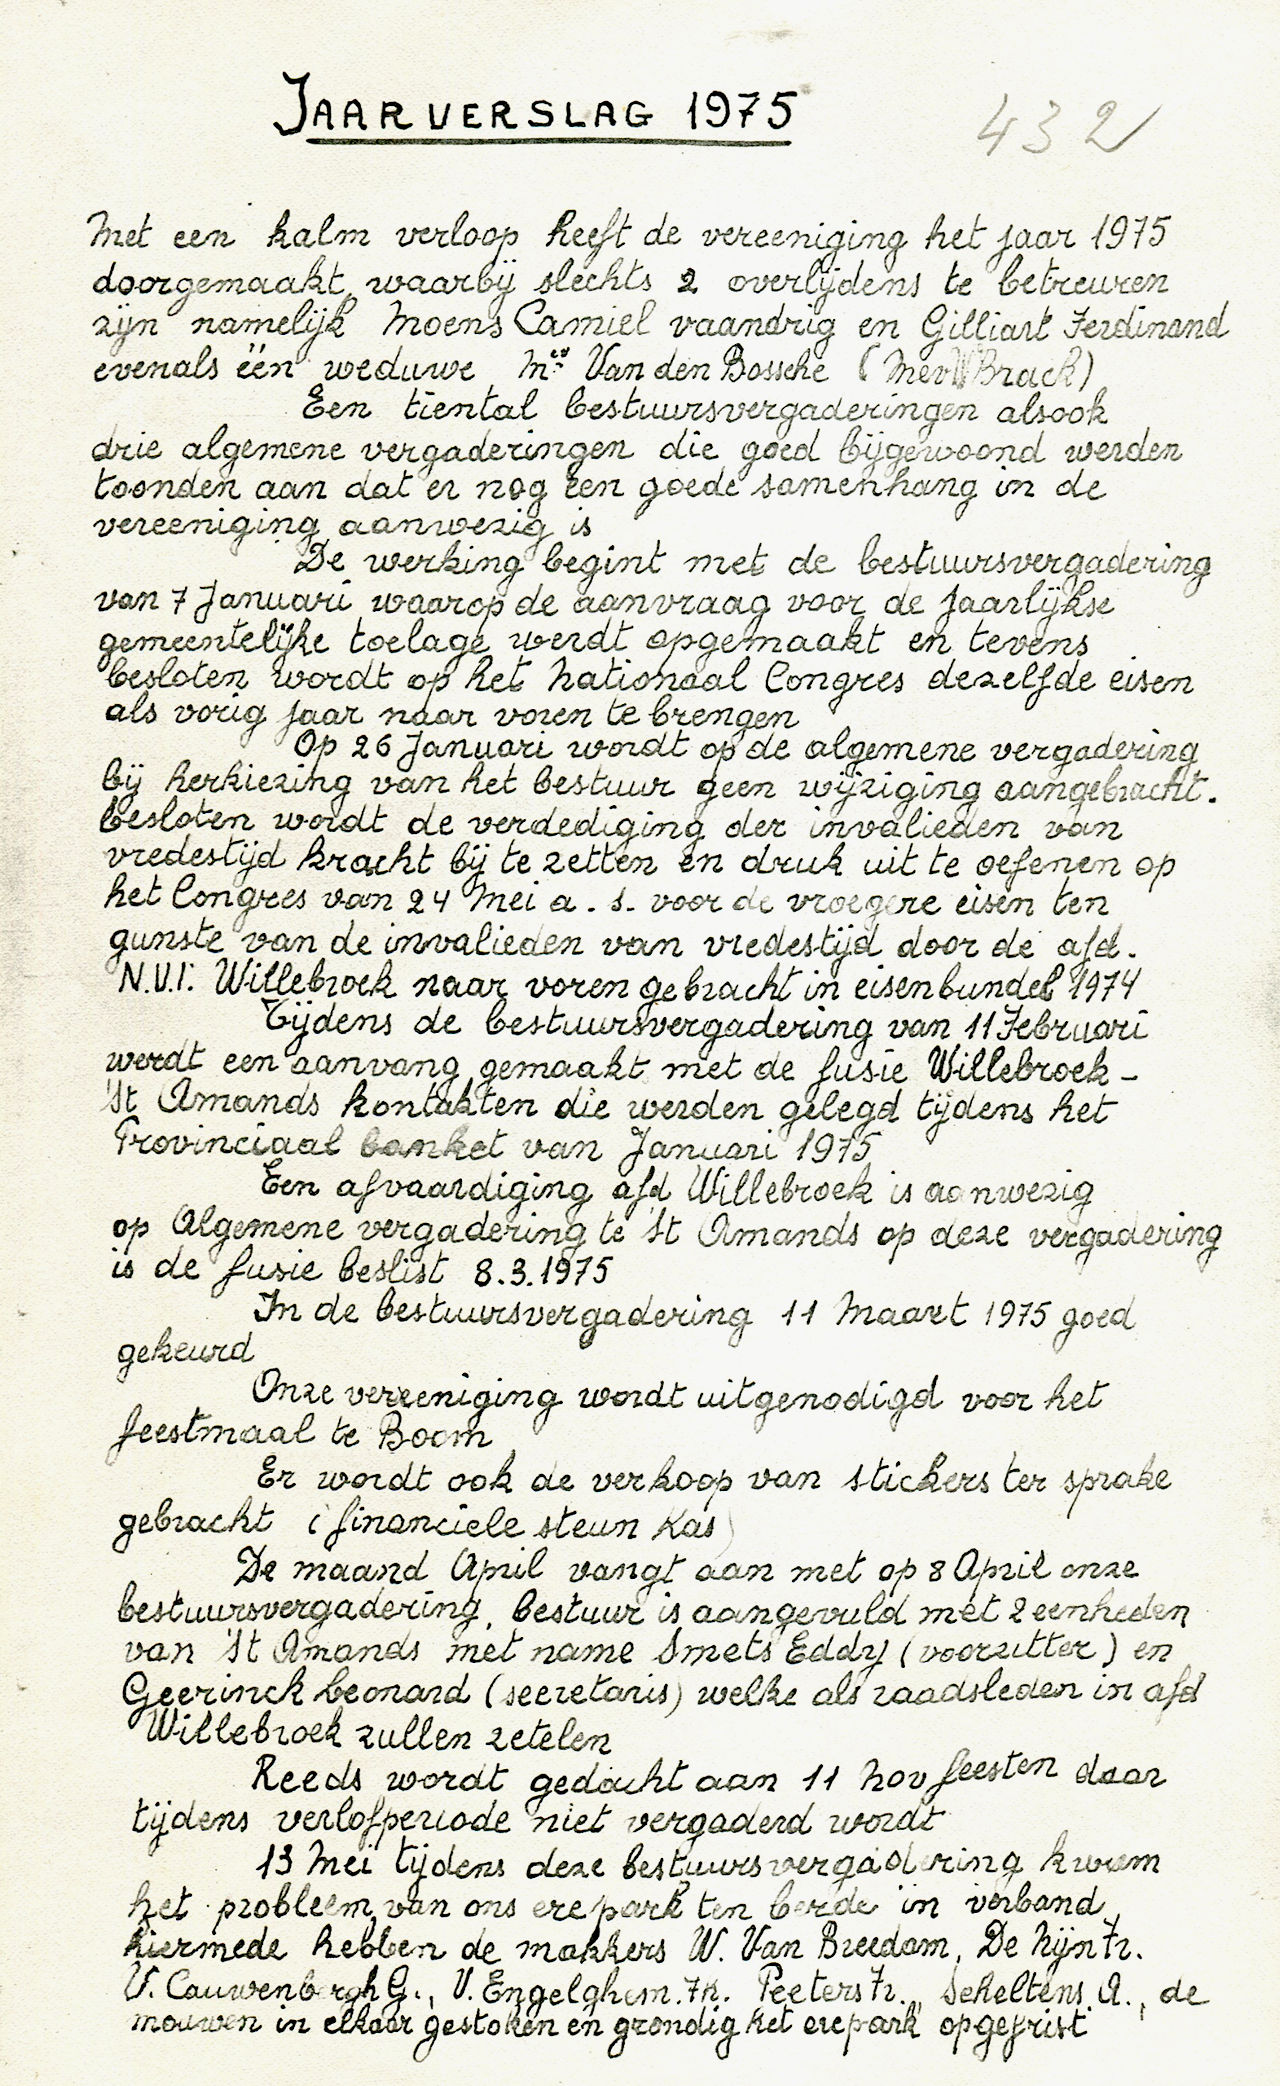 JAARVERSLAG 1975
432
Met een kalm verloop heeft de vereeniging het jaar 1975
doorgemaakt, waarbij slechts 2 overlijdens te betreuren
zijn namelijk Moens Camiel vaandrig en Gilliart Ferdinand
evenals één weduwe Mev Van den Bossche (Mev Brack)
Een tiental bestuursvergaderingen alsook
drie algemene vergaderingen die goed bijgewoond werden
toonden aan dat er nog een goede samenhang in de
vereeniging aanwezig is
De werking begint met de bestuursvergadering
van 7 Januari waarop de aanvraag voor de jaarlijkse
gemeentelijke toelage werdt opgemaakt en tevens
besloten wordt op het Nationaal Congres dezelfde eisen
als vorig jaar naar voren te brengen
Op 26 Januari wordt op de algemene vergadering
bij herkiezing van het bestuur geen wijziging aangebracht.
besloten wordt de verdediging der invalieden van
vredestijd kracht bij te zetten en druk uit te oefenen op
het Congres van 24 Mei a.s. voor de vroegere eisen ten
gunste van de invalieden van vredestijd door de afd.
N.V.I. Willebroek naar voren gebracht in eisenbundel 1974
Tijdens de bestuursvergadering van 11 Februari
werdt een aanvang gemaakt met de fusie Willebroek-
St Amands kontakten die werden gelegd tijdens het
Provinciaal banket van Januari 1975
Een afvaardiging afd Willebroek is aanwezig
op Algemene vergadering te St Amands op deze vergadering
is de fusie beslist 8.3.1975
In de bestuursvergadering 11 Maart 1975 goed
gekeurd
Onze vereeniging wordt uitgenodigd voor het
feestmaal te Boom
Er wordt ook de verkoop van stickers ter sprake
gebracht (financiele steun Kas)
De maand April vangt aan met op 8 April onze
bestuursvergadering, bestuur is aangevuld met 2 eenheden
van St Amands met name Smets Eddy (voorzitter) en
Geerinck Leonard (secretaris) welke als raadsleden in afd
Willebroek zullen zetelen
Reeds wordt gedacht aan 11 Nov feesten daar
tijdens verlofperiode niet vergaderd wordt
13 Mei tijdens deze bestuursvergadering kwam
het probleem van ons erepark ten berde in verband
hiermede hebben de makkers W. Van Breedam, De Nijn Fr.
V. Cauwenbergh G., V. Engelghem. Fk. Peeters Fr., Scheltens A., de
mouwen in elkaar gestoken en grondig het erepark opgefrist